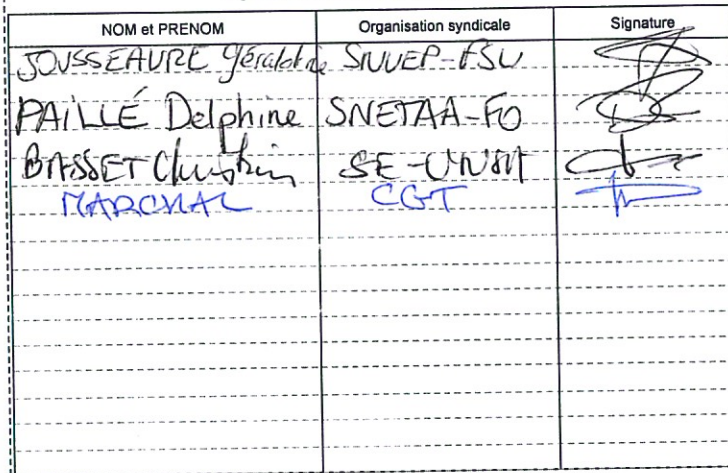 NOM et PRENOM Organisation syndicale Signature
JOUSSEAUME Géraldine SNUEP-FSU
PAILLÉ Delphine SNETAA-FO
BASSET Christian SE-UNSA
MARCHAL CGT